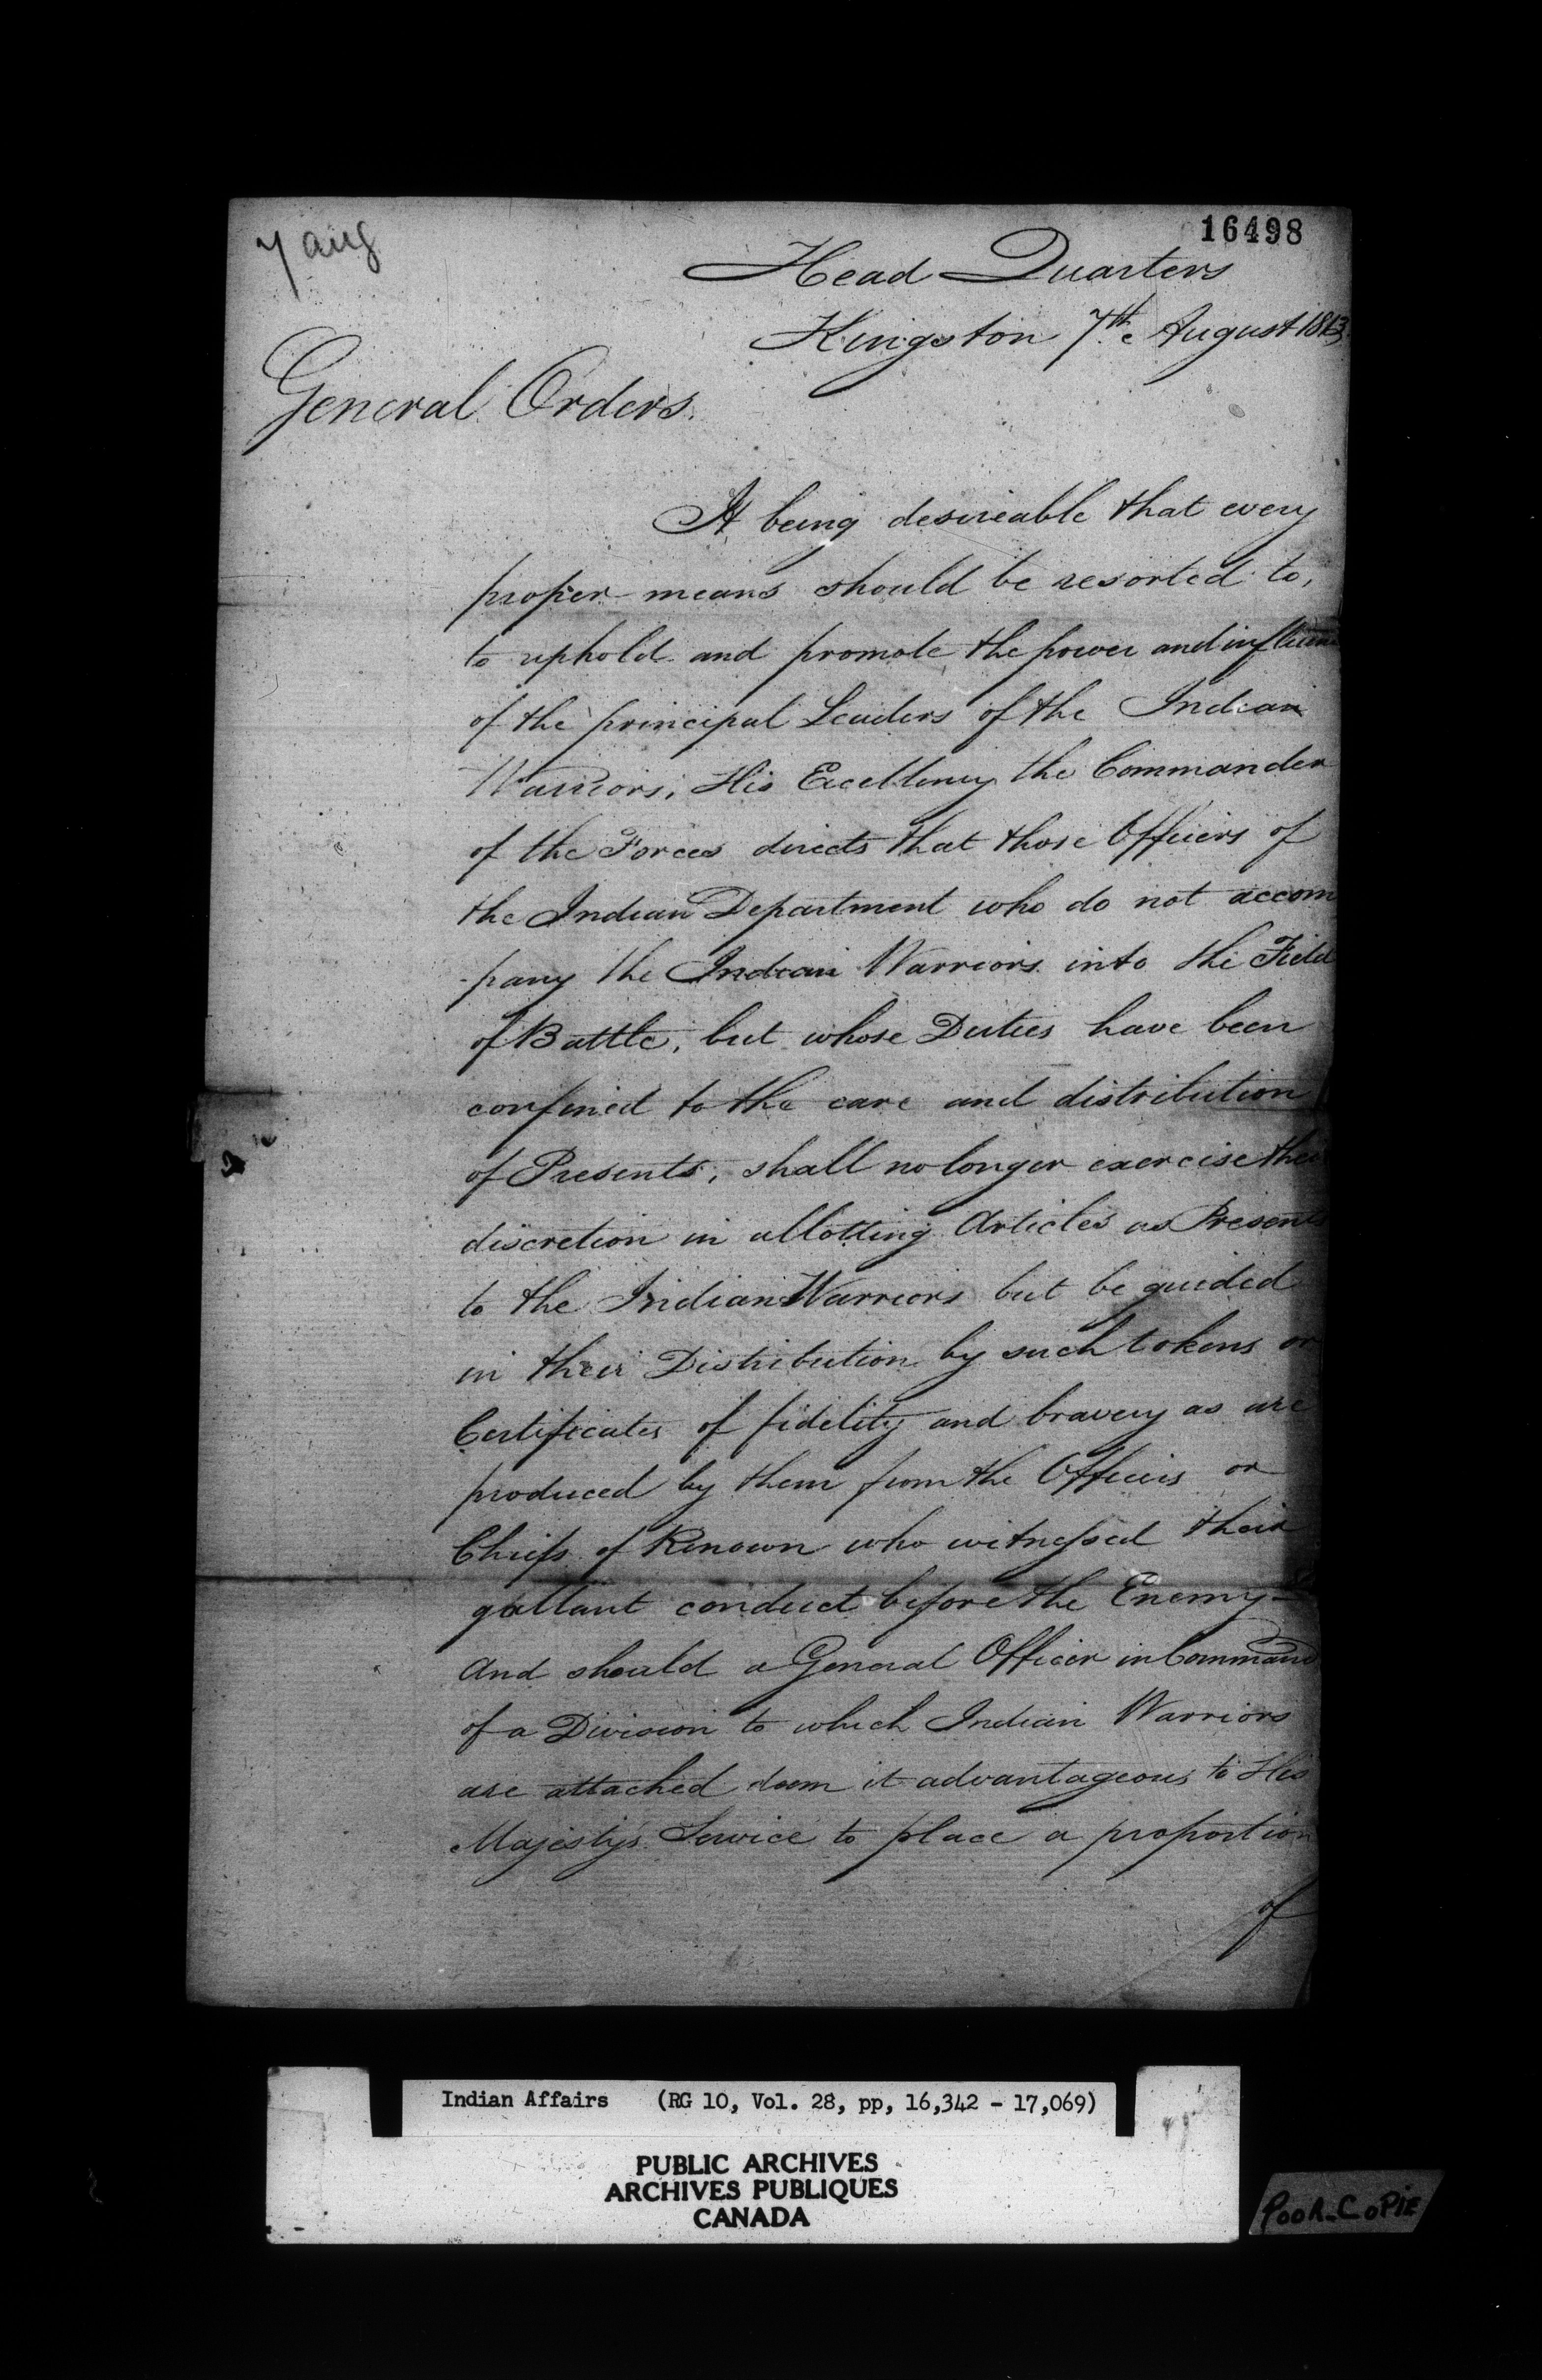 7 aug
16498
Head Quarters
Kingston 7th. August 1813
General Orders.
It being desireable that every
proper means should be resorted to,
to uphold and promote the power and influence
of the principal Leaders of the Indian
Warriors, His Excellency the Commander
of the Forces directs that those Officers of
the Indian Department who do not accom
-pany the Indian Warriors into the Field
of Battle, but whose Duties have been
confined to the care and distribution
of Presents, shall no longer exercise their
discretion in allotting Articles as Presents
to the Indian Warriors but be guided
in their Distribution by such tokens or
Certificates of fidelity and bravery as are
produced by them from the Officers or
Chiefs of Renown who witnessed their
gallant conduct before the Enemy -
And should a General Officer in Command
of a Division to which Indian Warriors
are attached deem it advantageous to His
Majesty's Service to place a proportion
of
Indian Affairs (RG 10, Vol. 28, pp, 16,342 - 17,069)
PUBLIC ARCHIVES
ARCHIVES PUBLIQUES
CANADA
POOR-COPIE